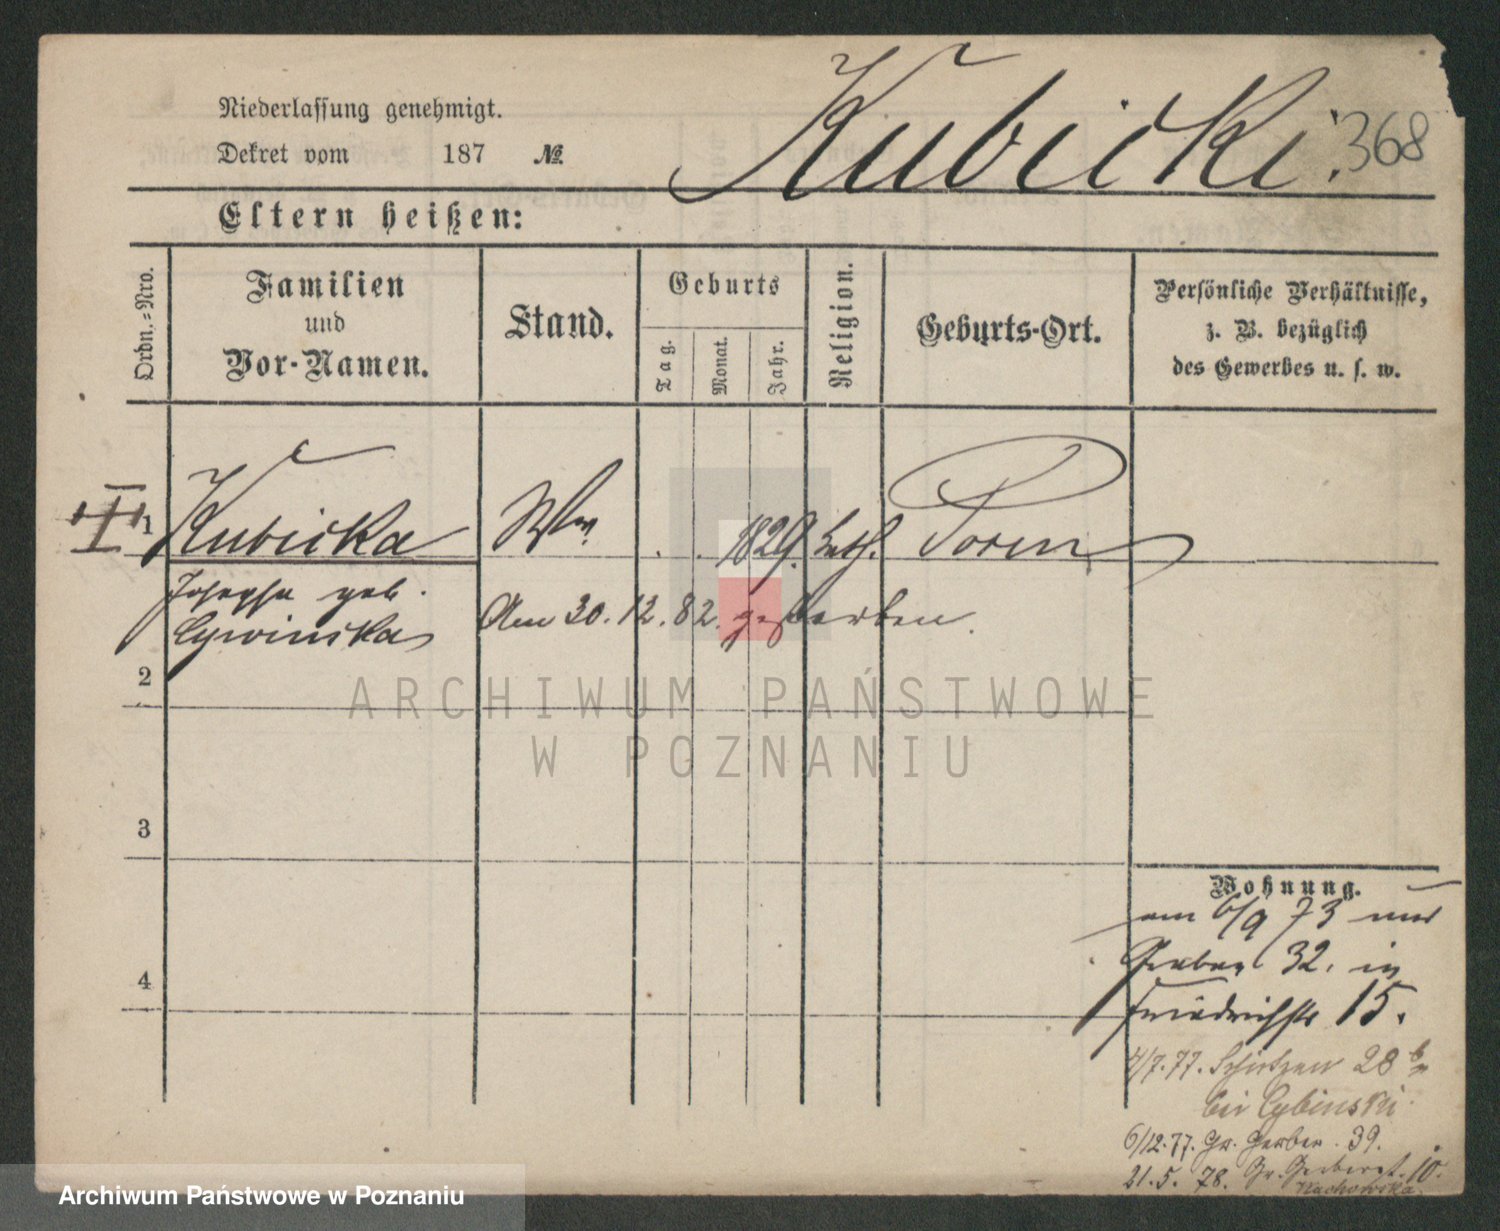 Niederlassung genehmigt.
Dekret vom 187 №
Kubicki. 368
Eltern heißen:
Ordn.=Nro.
Familien
und
Vor-Namen.
Stand.
Geburts
Tag.
Monat.
Jahr.
Religion.
Geburts-Ort.
Persönliche Verhältnisse,
z. B. bezüglich
des Gewerbes u. s. w.
1 Kubicka Ww. 1829. kath. Posen
Josepha geb.
Cywinska Am 30.12.82. gestorben.
2
3
4
Wohnung.
am 6/9 73 aus
Gerber 32. in
Friedrichstr 15.
4/7.77. Schützen 28 b
bei Cybinski
6/12.77. Gr. Gerber. 39.
21.5. 78. Gr. Gerberst. 10.
ARCHIWUM PAŃSTWOWE
W POZNANIU
Archiwum Państwowe w Poznaniu